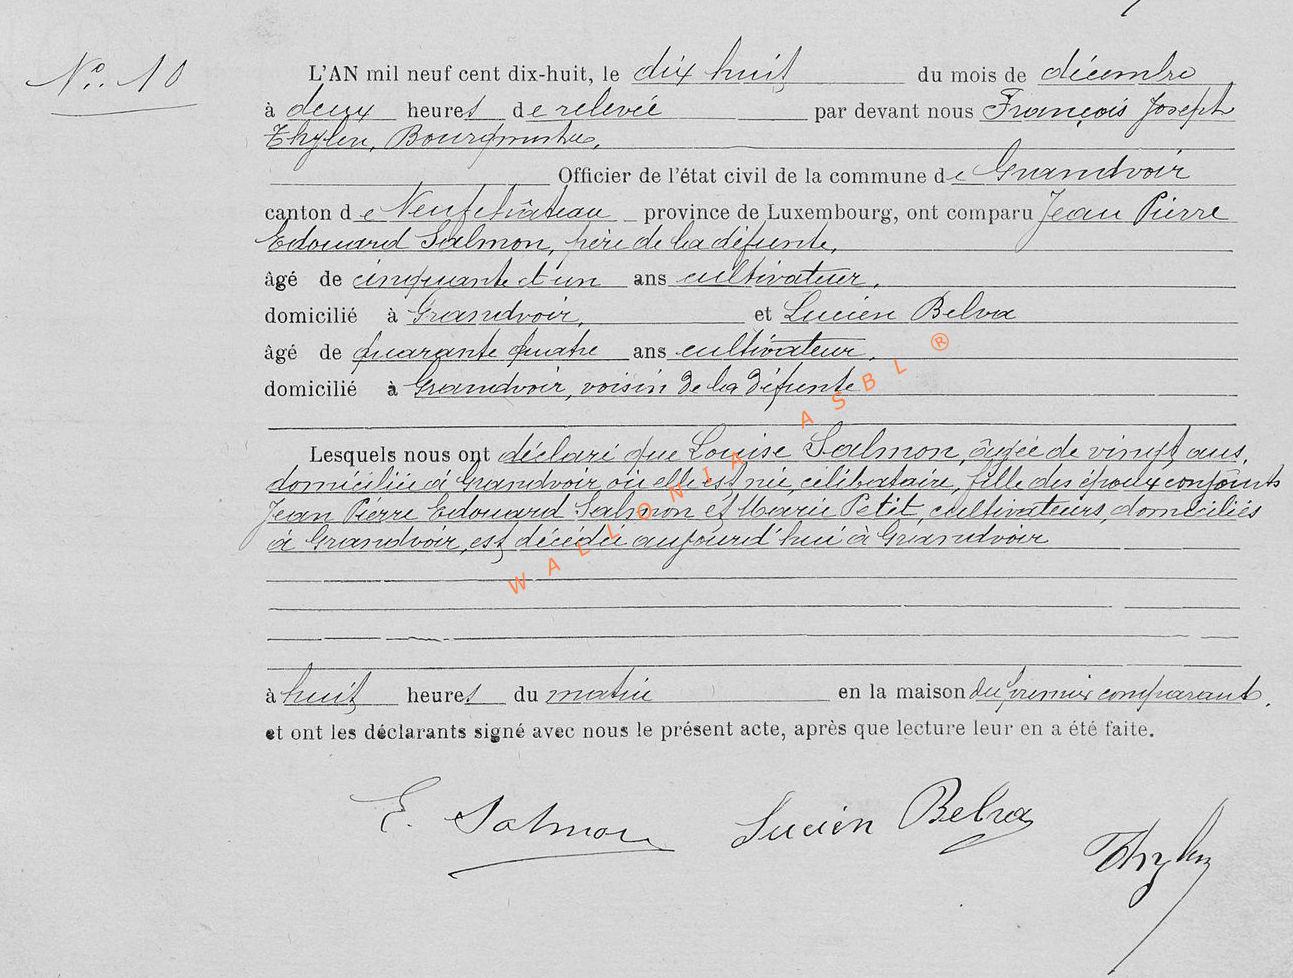 N°. 10
L'AN mil neuf cent dix-huit, le dix huit du mois de décembre
à deux heures de relevée par devant nous François Joseph
Thylen, Bourgmestre,
Officier de l'état civil de la commune de Grandvoir
canton de Neufchâteau province de Luxembourg, ont comparu Jean Pierre
Edouard Salmon, père de la défunte,
âgé de cinquante et un ans cultivateur,
domicilié à Grandvoir, et Lucien Belva
âgé de quarante quatre ans cultivateur,
domicilié à Grandvoir, voisin de la défunte
Lesquels nous ont déclaré que Louise Salmon, âgée de vingt ans,
domiciliée à Grandvoir où elle est née, célibataire, fille des époux conjoints
Jean Pierre Edouard Salmon et Marie Petit, cultivateurs, domiciliés
à Grandvoir, est décédée aujourd'hui à Grandvoir
à huit heures du matin en la maison du premier comparant.
et ont les déclarants signé avec nous le présent acte, après que lecture leur en a été faite.
E. Salmon Lucien Belva Thylen
WALLONIA ASBL ®